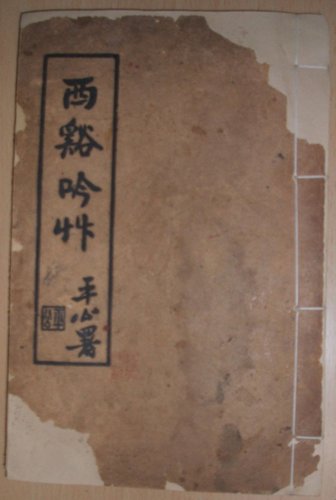 西谿吟艸
平心署